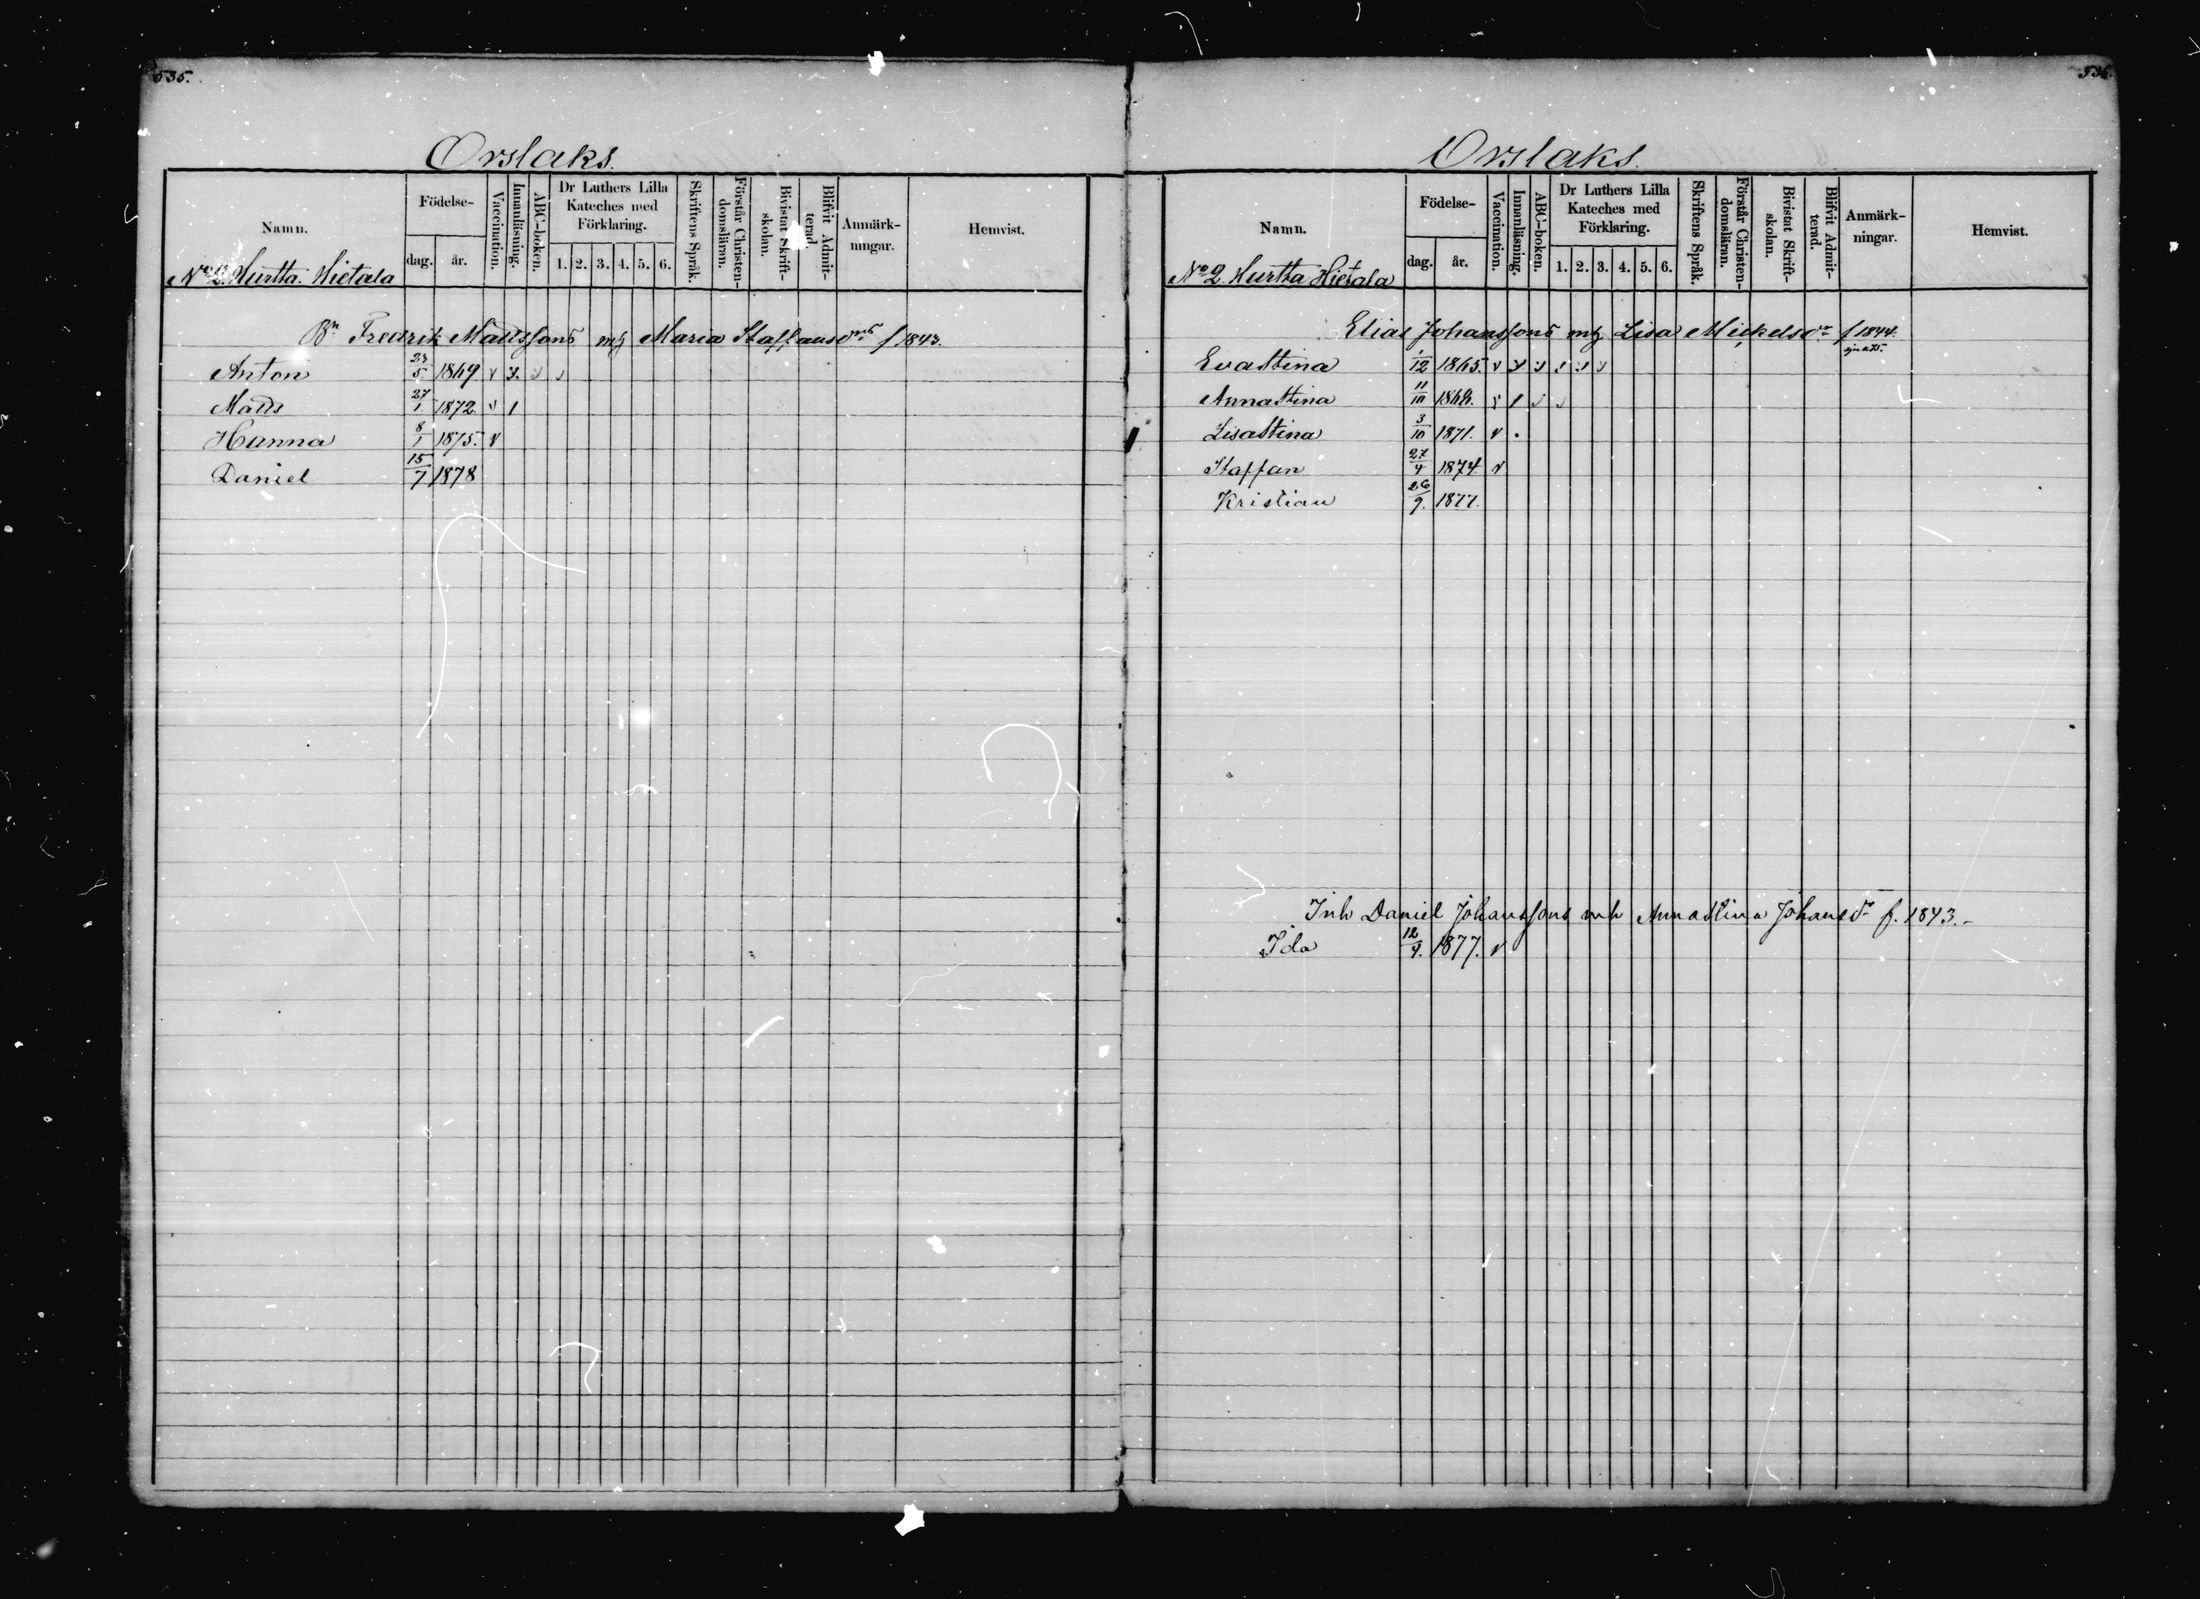 535.
Orslaks.
Namn.
Födelse-
dag.
år.
Vaccination.
Innanläsning.
ABC-boken.
Dr Luthers Lilla
Kateches med
Förklaring.
1. 2. 3. 4. 5. 6.
Skriftens Språk.
Förstår Christen-
domsläran.
Bivistat Skrift-
skolan.
Blifvit Admit-
terad.
Anmärk-
ningar.
Hemvist.
No 2. Hurtta Hietala
Bn Fredrik Mattssons mh Maria Staffansdrs f 1843.
Anton 23/5 1869 v
Matts 27/1 1872 v 1
Hanna 8/1 1875. v
Daniel 15/7 1878
536.
Orslaks.
Namn.
Födelse-
dag.
år.
Vaccination.
Innanläsning.
ABC-boken.
Dr Luthers Lilla
Kateches med
Förklaring.
1. 2. 3. 4. 5. 6.
Skriftens Språk.
Förstår Christen-
domsläran.
Bivistat Skrift-
skolan.
Blifvit Admit-
terad.
Anmärk-
ningar.
Hemvist.
No 2. Hurtta Hietala
Elias Johanssons mh Lisa Mickelsdr f 1844.
Evastina 1/12 1865. v
Annastina 11/10 1868. 1
Lisastina 3/10 1871. v
Staffan 27/4 1874. v
Kristian 26/9. 1877.
Inh Daniel Johanssons mh Annastina Johansdr f. 1843.-
Ida 12/4. 1877. v